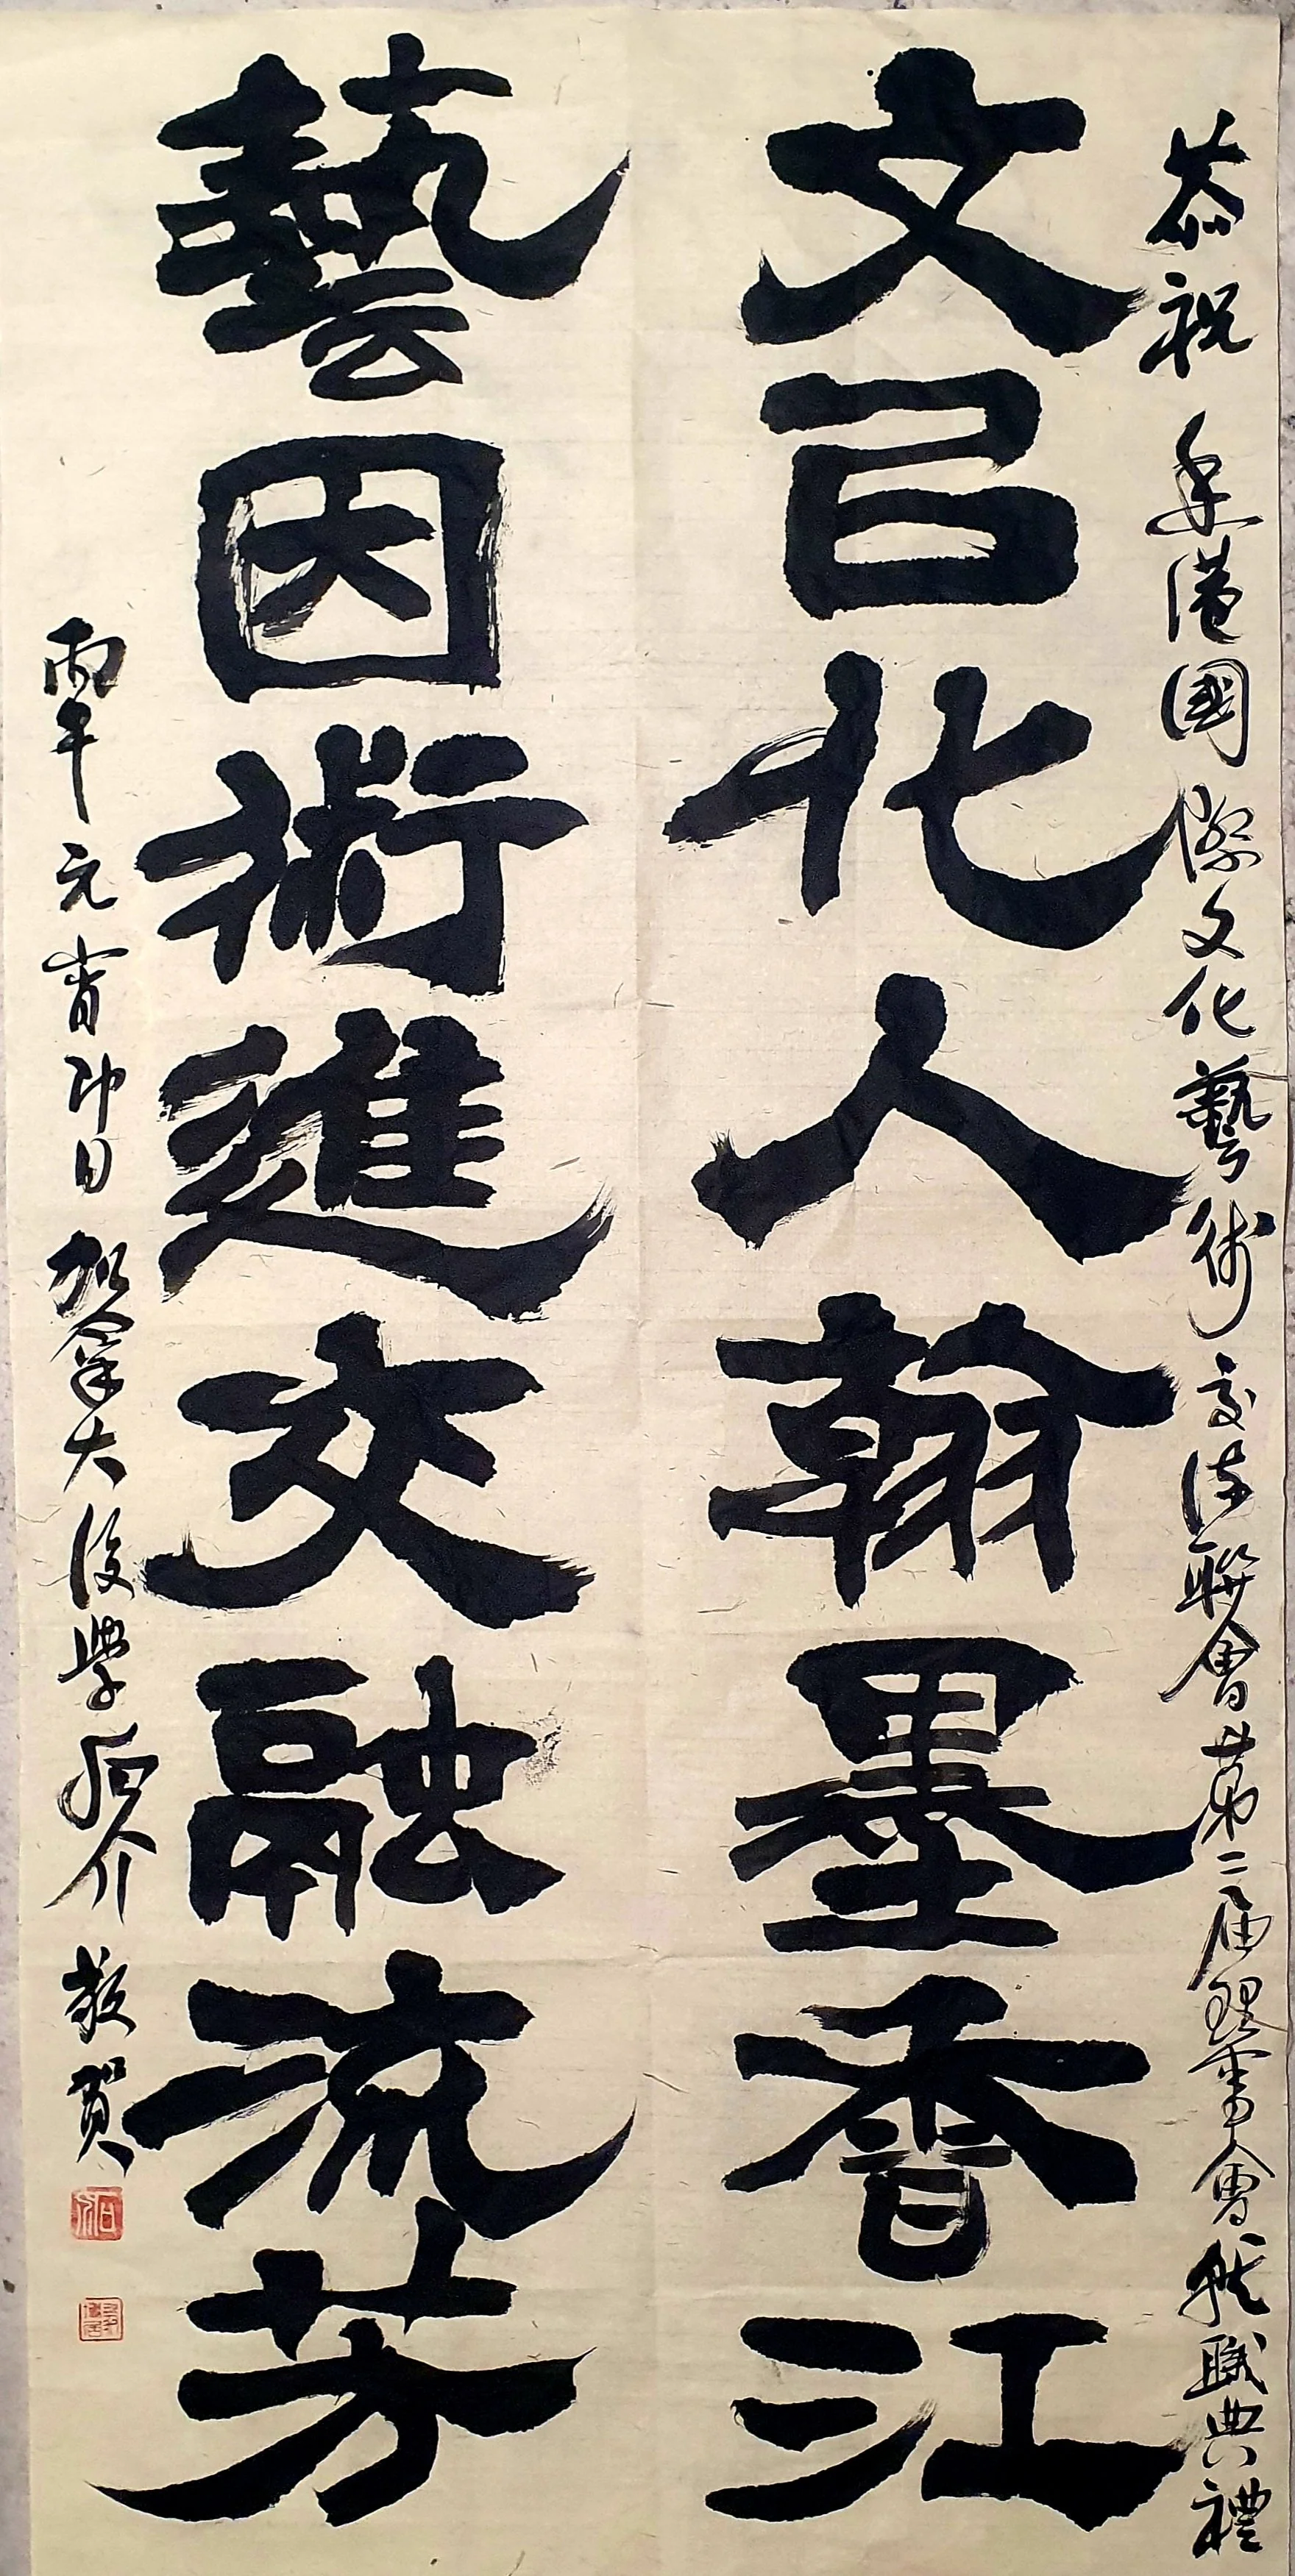 恭祝 香港國際文化藝術交流聯會第二屆理事會就職典禮
文㠯化人翰墨香江
藝因術進交融流芳
丙午元宵即日加拿大後學石介敬賀